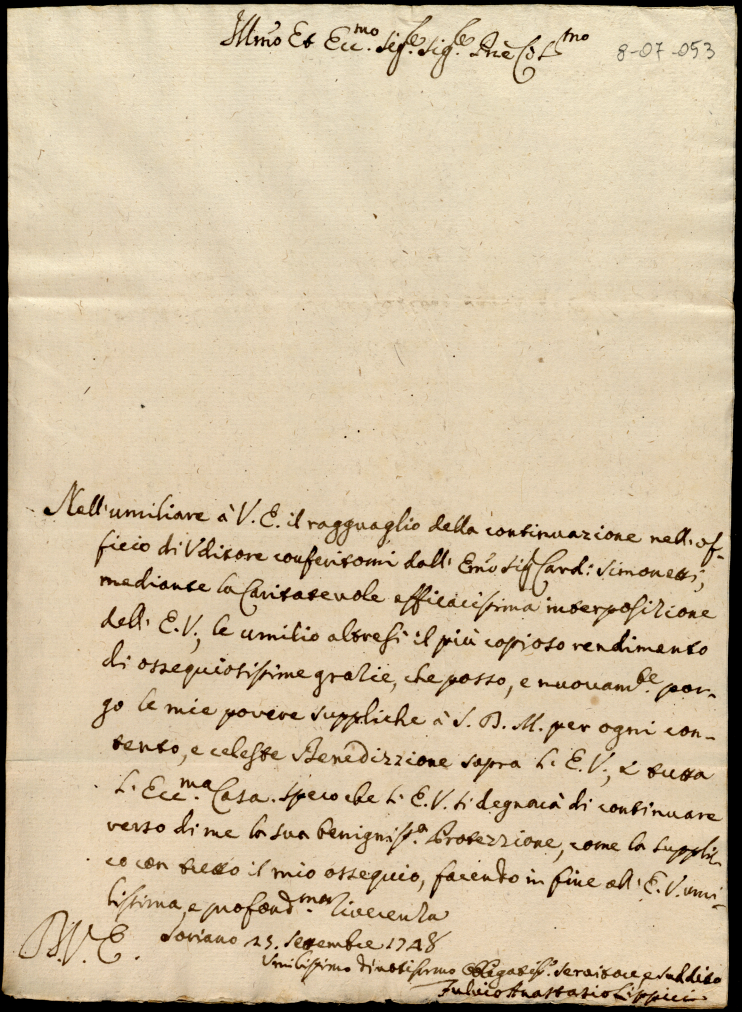 Illmo Et Eccmo. Sigre. Sigre. Prôe Colmo
8-07-053
Nell'umiliare à V. E. il ragguaglio della continuazione nell'of-
ficio di Uditore conferitomi dall' Emo Sigr Card: Simonetti,
mediante la Caritatevole efficacissima interposizione
dell' E. V., le umilio altresì il più copioso rendimento
di ossequiosissime grazie, che posso, e nuovambe por-
go le mie povere suppliche à S. B. M. per ogni con-
tento, e celeste Benedizzione sopra l' E. V., e tutta
l' Eccma Casa. Spero che l' E. V. si degnarà di continuare
verso di me la sua benignissa Protezzione, come la suppli-
co con tutto il mio ossequio, facendo in fine all' E. V. umi-
lissima, e profondma riverenza
D. V. E. Soriano 15. Settembre 1748
Umilissimo Divotissimo Obligatisso. Servitore, e suddito
Fulvio Anastasio Lippici